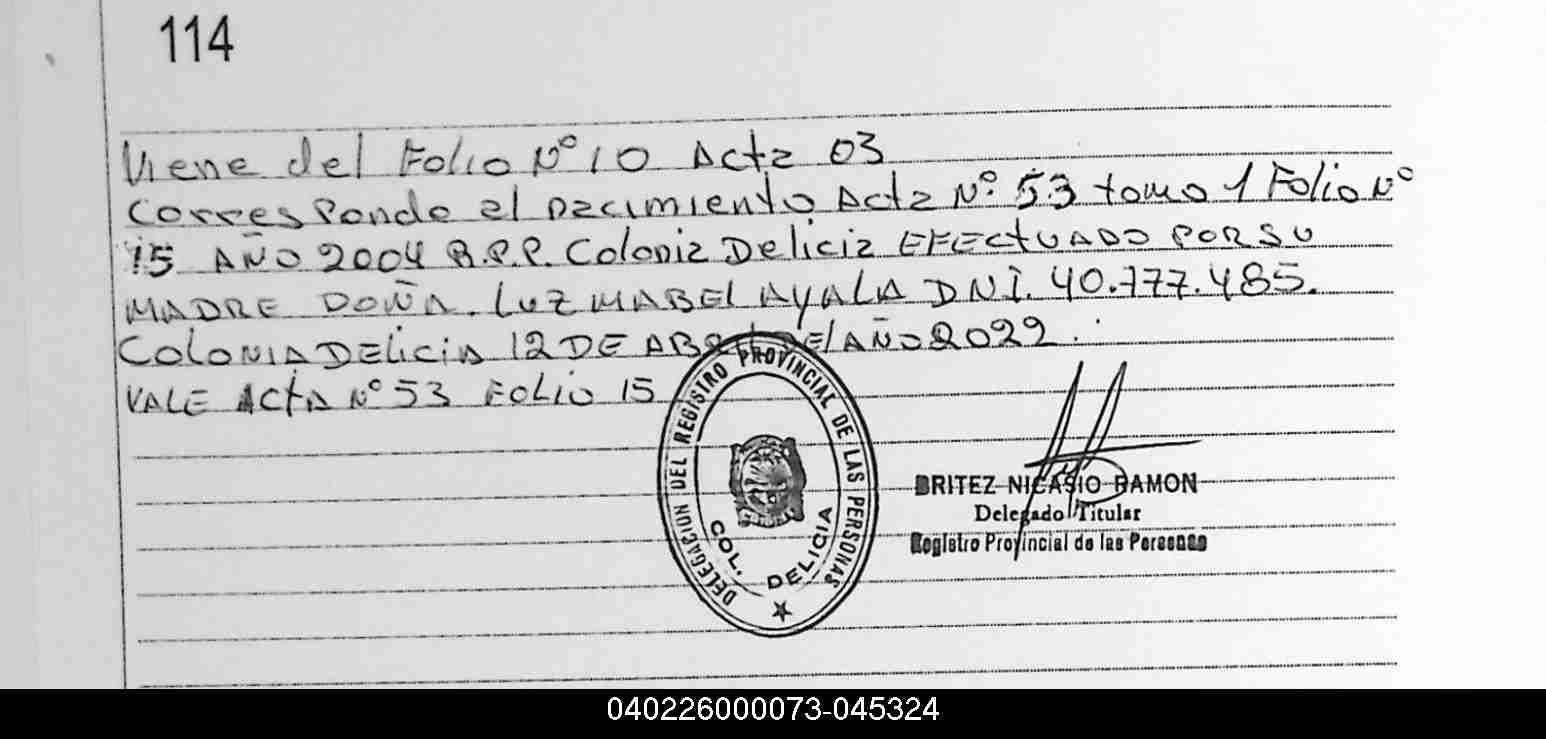 114
Viene del Folio Nº 10 Acta 03
Corresponde al nacimiento Acta Nº 53 tomo 1 Folio Nº
15 AÑO 2004 R.P.P. Colonia Delicia EFECTUADO POR SU
MADRE DOÑA. LUZ MABEL AYALA DNI. 40.777.485.
COLONIA DELICIA 12 DE ABRIL DEL AÑO 2022.
VALE ACTA Nº 53 FOLIO 15
DELEGACION DEL REGISTRO PROVINCIAL DE LAS PERSONAS
COL. DELICIA
BRITEZ NICASIO RAMON
Delegado Titular
Registro Provincial de las Personas
040226000073-045324